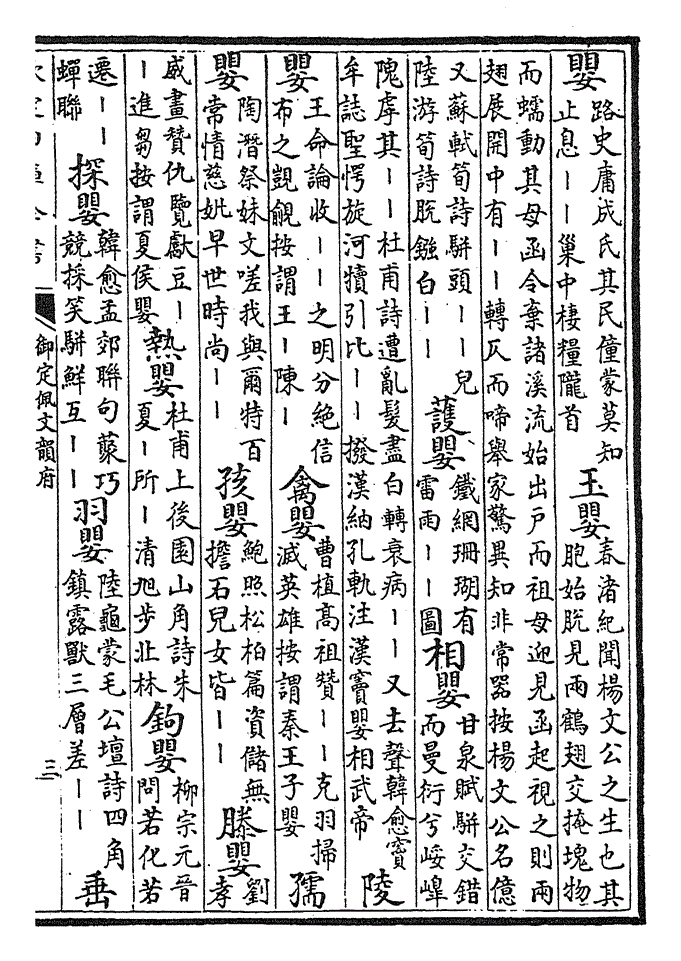 嬰
路史庸成氏其民僮蒙莫知
止息——巢中棲糧隴首
玉嬰
春渚紀聞楊文公之生也其
胞始脫見兩鶴翅交掩塊物
而蠕動其母函令棄諸溪流始出戶而祖母迎見函起視之則兩
翅展開中有——轉仄而啼舉家驚異知非常器按楊文公名億
又蘇軾筍詩駢頭——兒
陸游筍詩脫鏹白——
護嬰
鐵網珊瑚有
雷雨——圖
相嬰
甘泉賦駢交錯
而曼衍兮
隗虖其——杜甫詩遭亂髮盡白轉衰病——又去聲韓愈竇
牟誌聖愕旋河犢引比——撥漢納孔軌注漢竇嬰相武帝
陵
嬰
王命論收——之明分絕信
布之覬覦按謂王—陳—
禽嬰
曹植高祖贊——克羽掃
滅英雄按謂秦王子嬰
孺
嬰
陶潛祭妹文嗟我與爾特百
常情慈妣早世時尚——
孩嬰
鮑照松柏篇資儲無
擔石兒女皆——
滕嬰
劉
孝
威畫贊仇覽獻豆—
—進芻按謂夏侯嬰
熱嬰
杜甫上後園山角詩朱
夏—所—清旭步北林
鉤嬰
柳宗元晉
問若化若
遷——
蟬聯
探嬰
韓愈孟郊聯句蘂巧
競採笑駢鮮互——
羽嬰
陸龜蒙毛公壇詩四角
鎮露獸三層差——
垂
御定佩文韻府
三